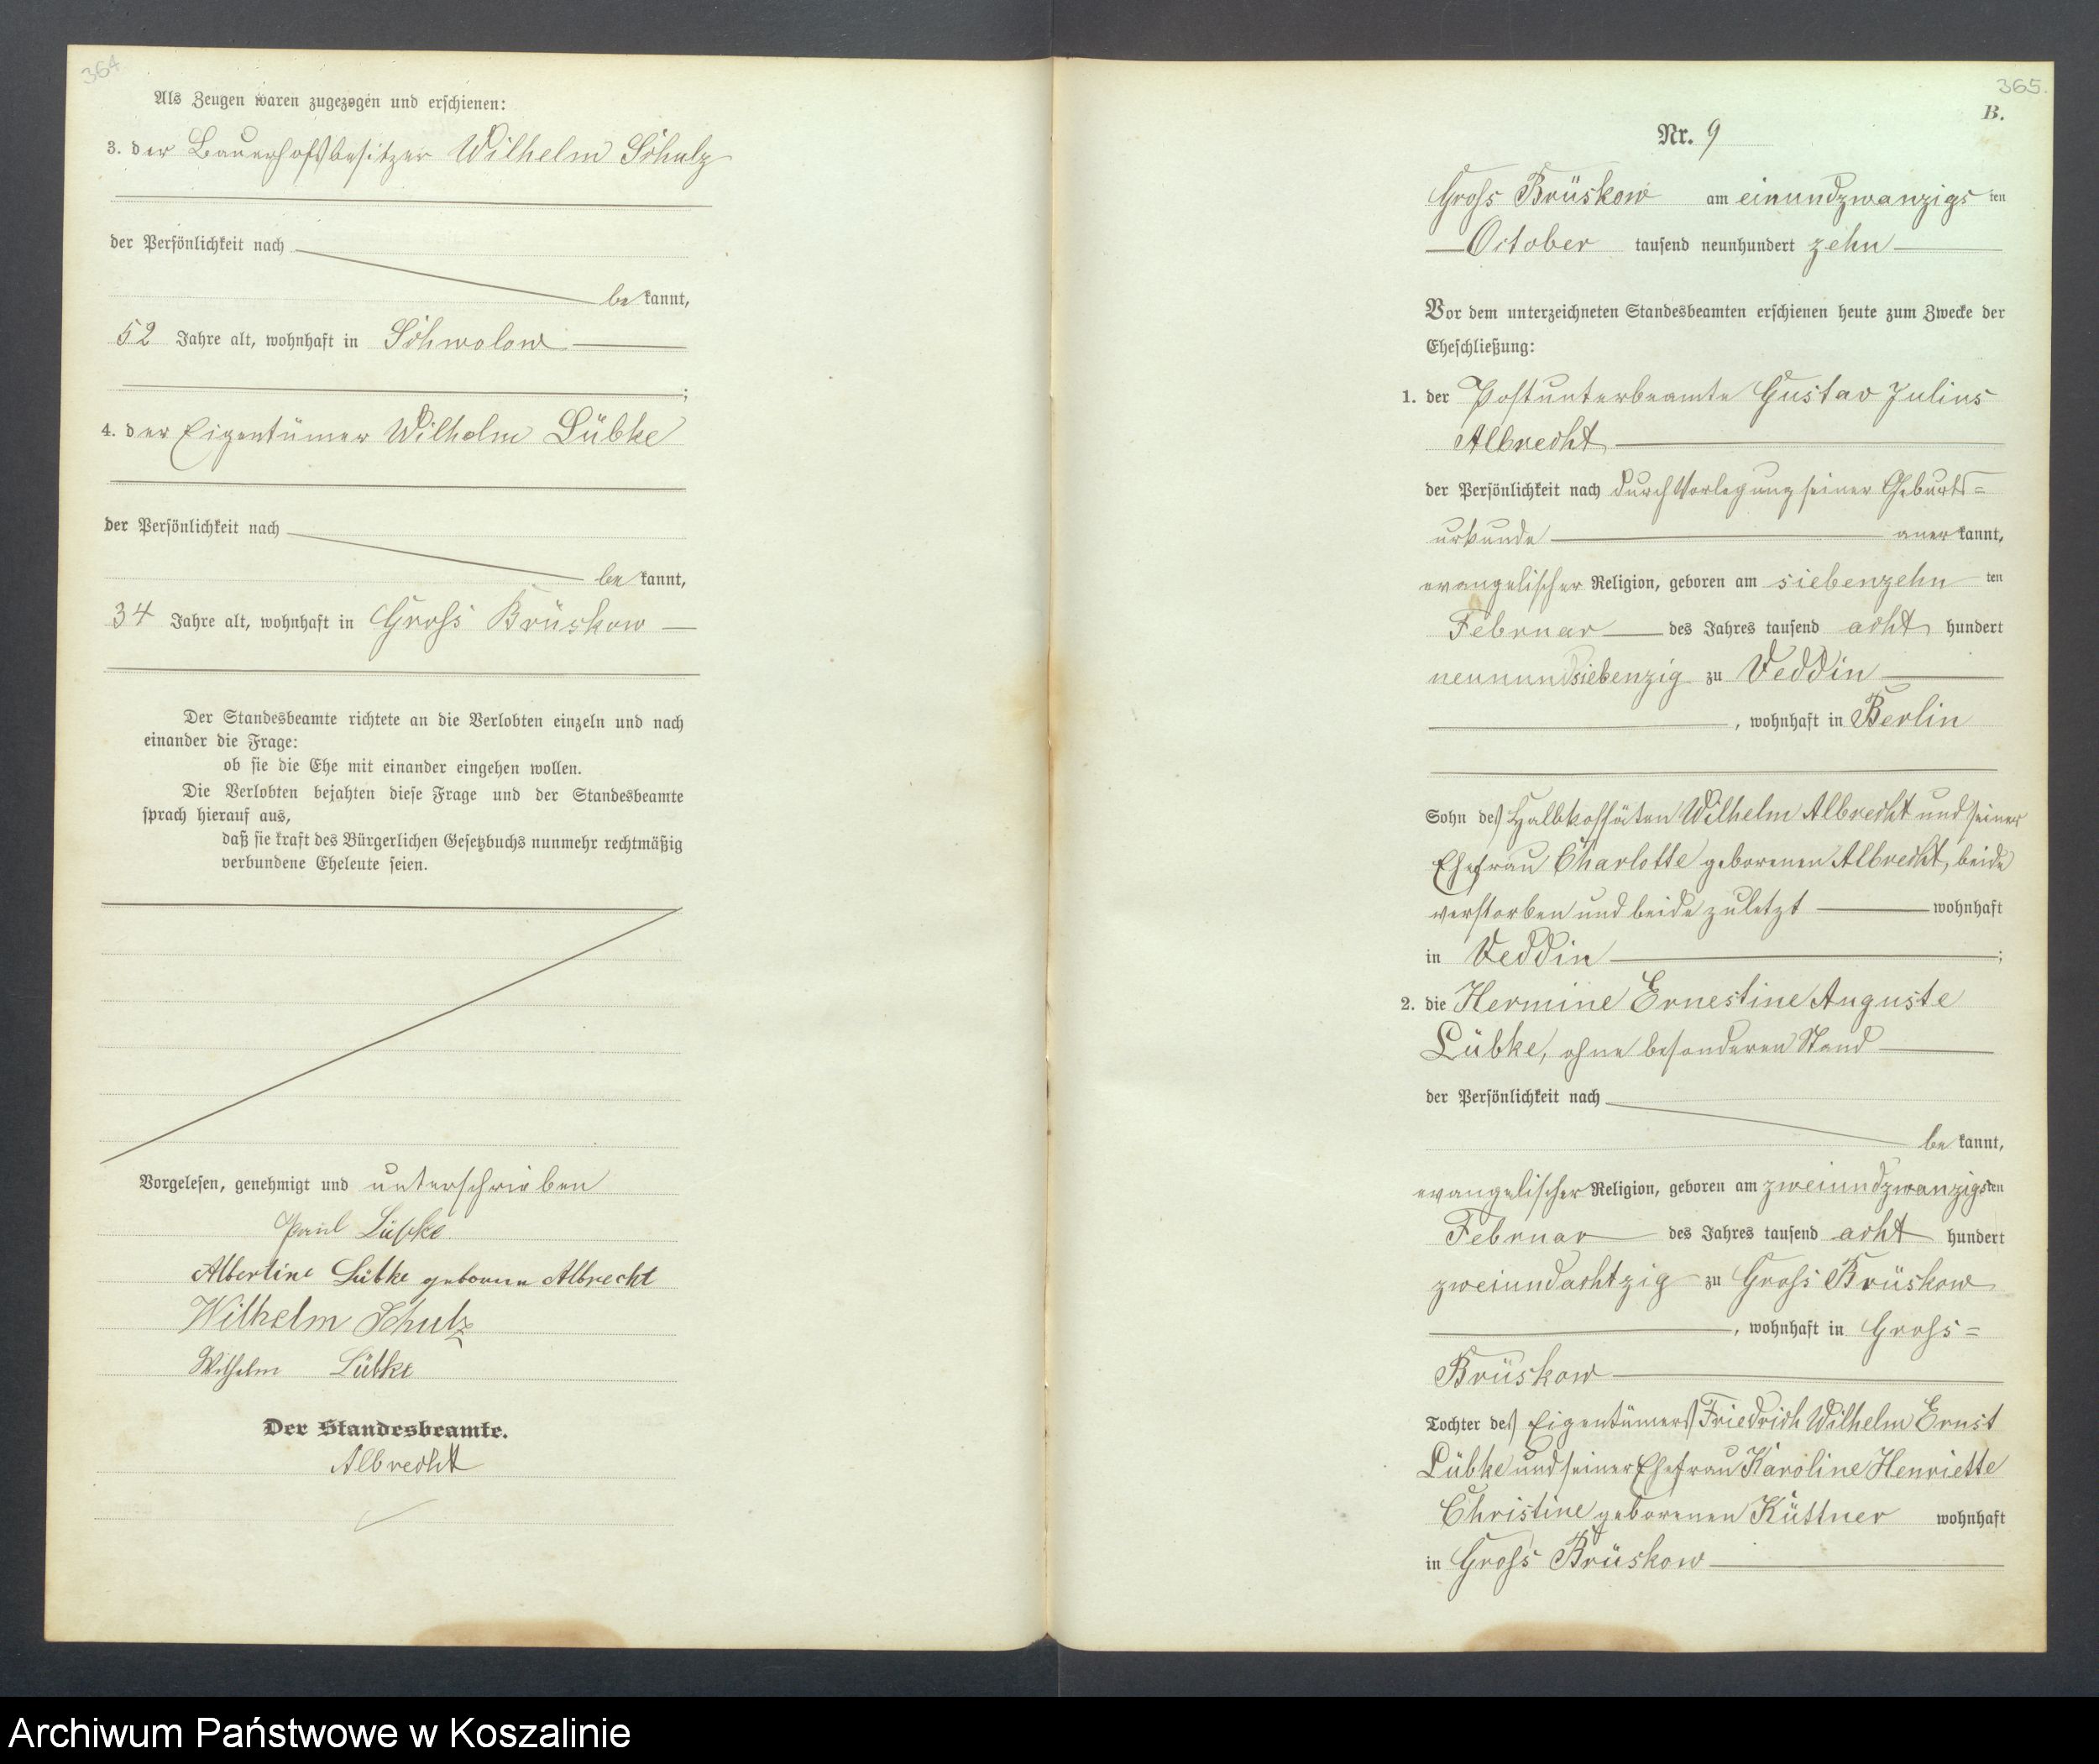 364
Als Zeugen waren zugezogen und erschienen:
3. der Bauerhofsbesitzer Wilhelm Schulz
der Persönlichkeit nach
be kannt,
52 Jahre alt, wohnhaft in Schwolow
;
4. der Eigentümer Wilhelm Lübke
der Persönlichkeit nach
be kannt,
34 Jahre alt, wohnhaft in Gross Brüskow
Der Standesbeamte richtete an die Verlobten einzeln und nach
einander die Frage:
ob sie die Ehe mit einander eingehen wollen.
Die Verlobten bejahten diese Frage und der Standesbeamte
sprach hierauf aus,
daß sie kraft des Bürgerlichen Gesetzbuchs nunmehr rechtmäßig
verbundene Eheleute seien.
Vorgelesen, genehmigt und unterschrieben
Paul Lübke
Albertine Lübke geborene Albrecht
Wilhelm Schulz
Wilhelm Lübke
Der Standesbeamte.
Albrecht
365.
B.
Nr. 9
Gross Brüskow am einundzwanzigs ten
October tausend neunhundert zehn
Vor dem unterzeichneten Standesbeamten erschienen heute zum Zwecke der
Eheschließung:
1. der Postunterbeamte Gustav Julius
Albrecht
der Persönlichkeit nach durch Vorlegung seiner Geburts=
urkunde anerkannt,
evangelischer Religion, geboren am siebenzehn ten
Februar des Jahres tausend acht hundert
neunundsiebenzig zu Veddin
, wohnhaft in Berlin
Sohn des Halbkossäten Wilhelm Albrecht und seiner
Ehefrau Charlotte geborenen Albrecht, beide
verstorben und beide zuletzt wohnhaft
in Veddin ;
2. die Hermine Ernestine Auguste
Lübke, ohne besonderen Stand
der Persönlichkeit nach
be kannt,
evangelischer Religion, geboren am zweiundzwanzigsten
Februar des Jahres tausend acht hundert
zweiundachtzig zu Gross Brüskow
, wohnhaft in Gross=
Brüskow
Tochter des Eigentümers Friedrich Wilhelm Ernst
Lübke und seiner Ehefrau Karoline Henriette
Christine geborenen Küttner wohnhaft
in Gross Brüskow
Archiwum Państwowe w Koszalinie